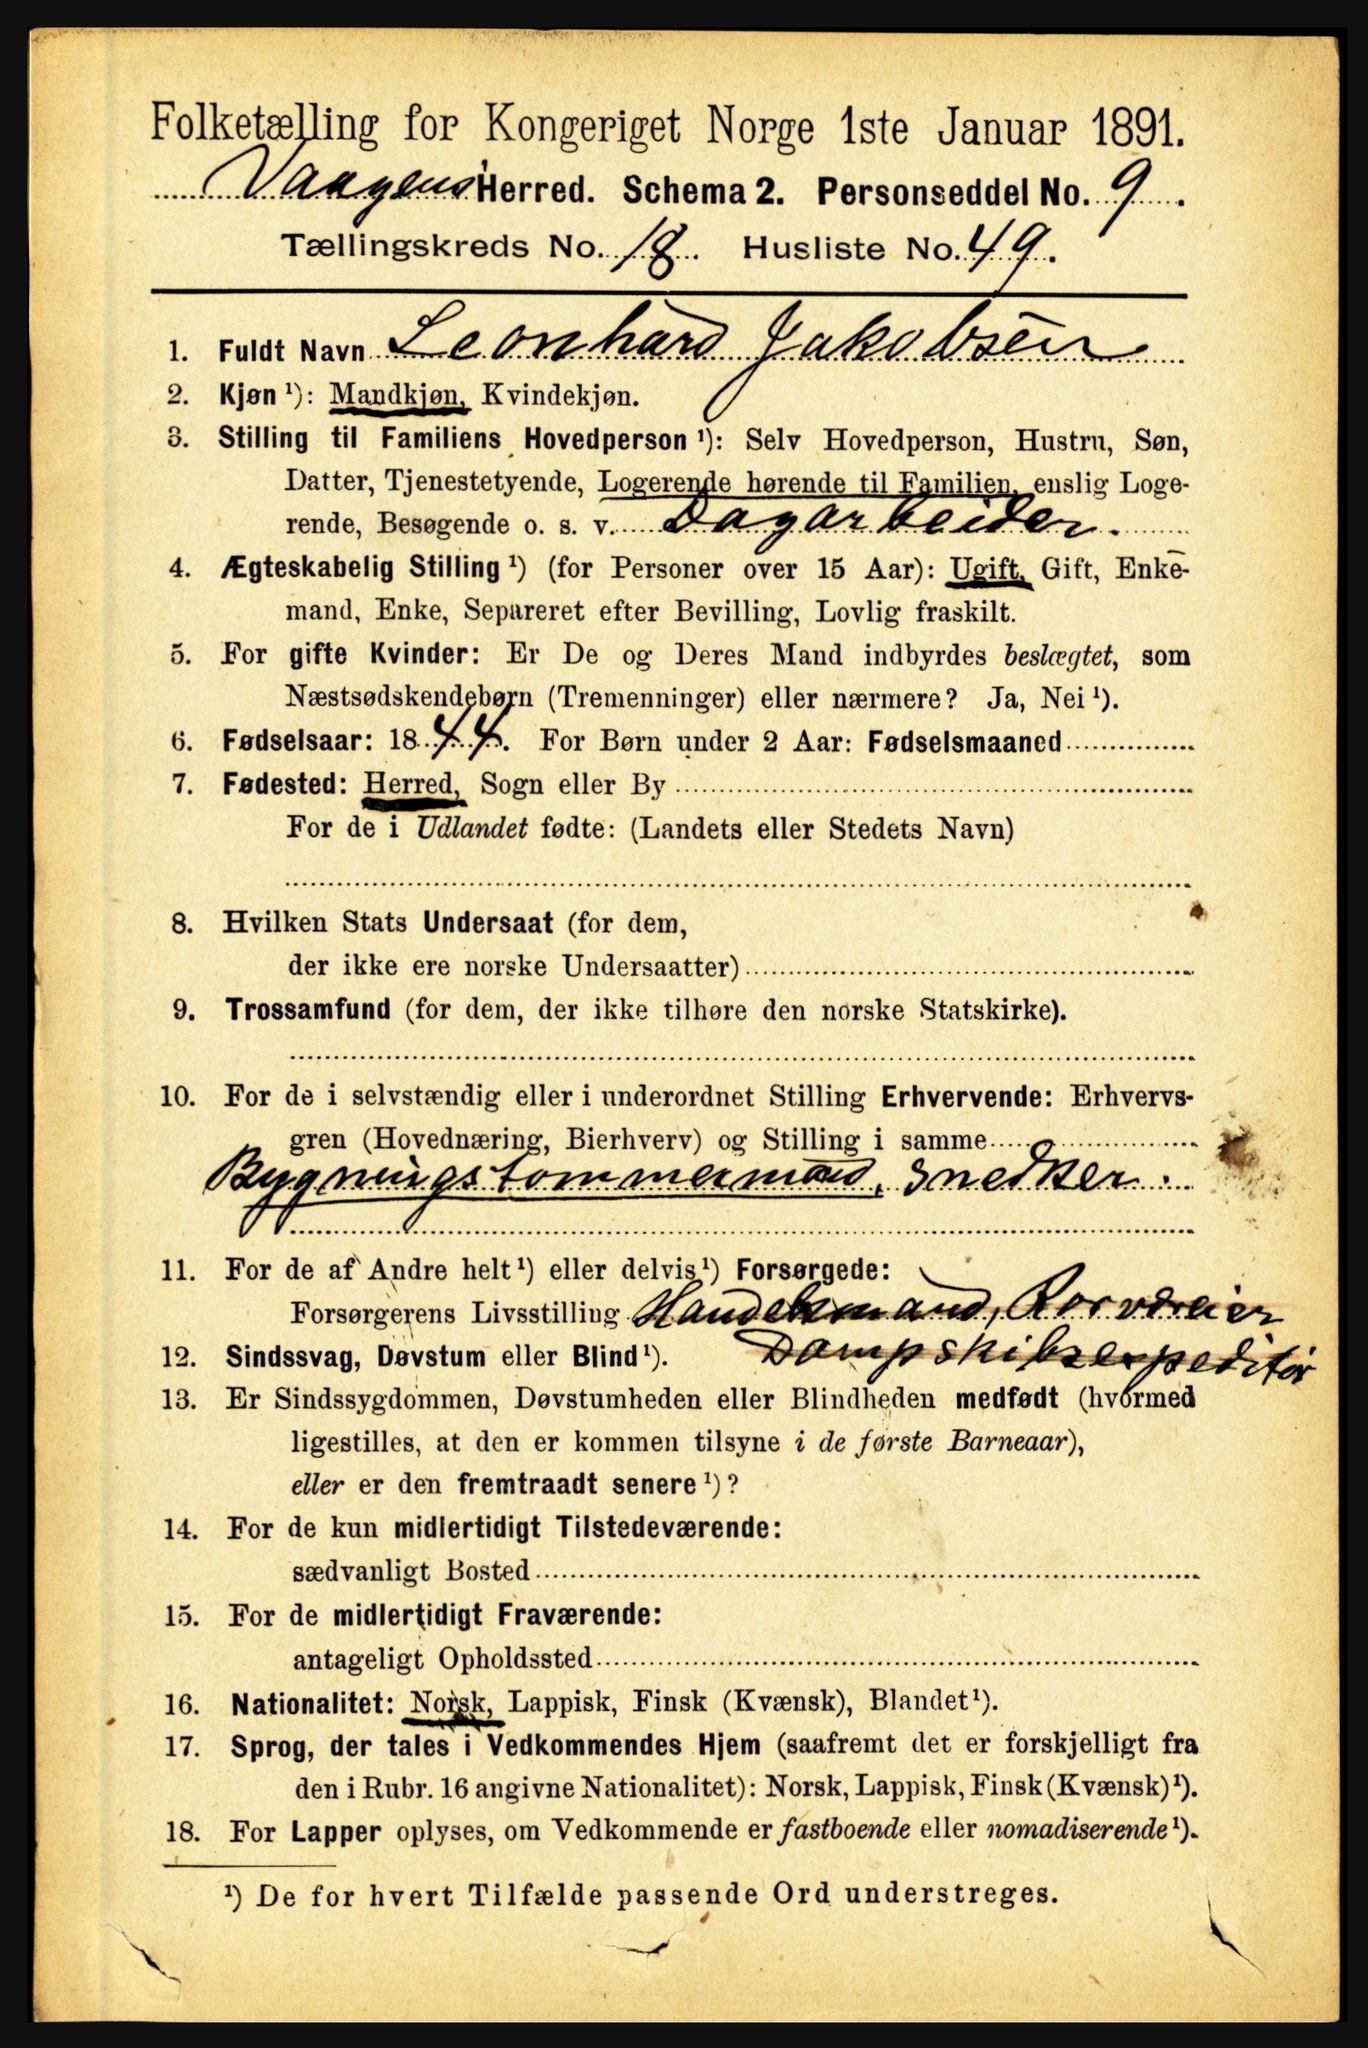 Folketælling for Kongeriget Norge 1ste Januar 1891.
Vaagens Herred. Schema 2. Personseddel No. 9.
Tællingskreds No. 18. Husliste No. 49.
1. Fuldt Navn Leonhard Jakobsen
2. Kjøn ¹): Mandkjøn, Kvindekjøn.
3. Stilling til Familiens Hovedperson ¹): Selv Hovedperson, Hustru, Søn,
Datter, Tjenestetyende, Logerende hørende til Familien, enslig Loge-
rende, Besøgende o. s. v. Dagarbeider.
4. Ægteskabelig Stilling ¹) (for Personer over 15 Aar): Ugift, Gift, Enke-
mand, Enke, Separeret efter Bevilling, Lovlig fraskilt.
5. For gifte Kvinder: Er De og Deres Mand indbyrdes beslægtet, som
Næstsødskendebørn (Tremenninger) eller nærmere? Ja, Nei ¹).
6. Fødselsaar: 1844. For Børn under 2 Aar: Fødselsmaaned
7. Fødested: Herred, Sogn eller By
For de i Udlandet fødte: (Landets eller Stedets Navn)
8. Hvilken Stats Undersaat (for dem,
der ikke ere norske Undersaatter)
9. Trossamfund (for dem, der ikke tilhøre den norske Statskirke).
10. For de i selvstændig eller i underordnet Stilling Erhvervende: Erhvervs-
gren (Hovednæring, Bierhverv) og Stilling i samme
Bygningstømmermand, snedker.
11. For de af Andre helt ¹) eller delvis ¹) Forsørgede:
Forsørgerens Livsstilling Handelsmand, Rorværeier
12. Sindssvag, Døvstum eller Blind ¹). Dampskibsexpeditør
13. Er Sindssygdommen, Døvstumheden eller Blindheden medfødt (hvormed
ligestilles, at den er kommen tilsyne i de første Barneaar),
eller er den fremtraadt senere ¹)?
14. For de kun midlertidigt Tilstedeværende:
sædvanligt Bosted
15. For de midlertidigt Fraværende:
antageligt Opholdssted
16. Nationalitet: Norsk, Lappisk, Finsk (Kvænsk), Blandet ¹).
17. Sprog, der tales i Vedkommendes Hjem (saafremt det er forskjelligt fra
den i Rubr. 16 angivne Nationalitet): Norsk, Lappisk, Finsk (Kvænsk) ¹).
18. For Lapper oplyses, om Vedkommende er fastboende eller nomadiserende ¹).
¹) De for hvert Tilfælde passende Ord understreges.